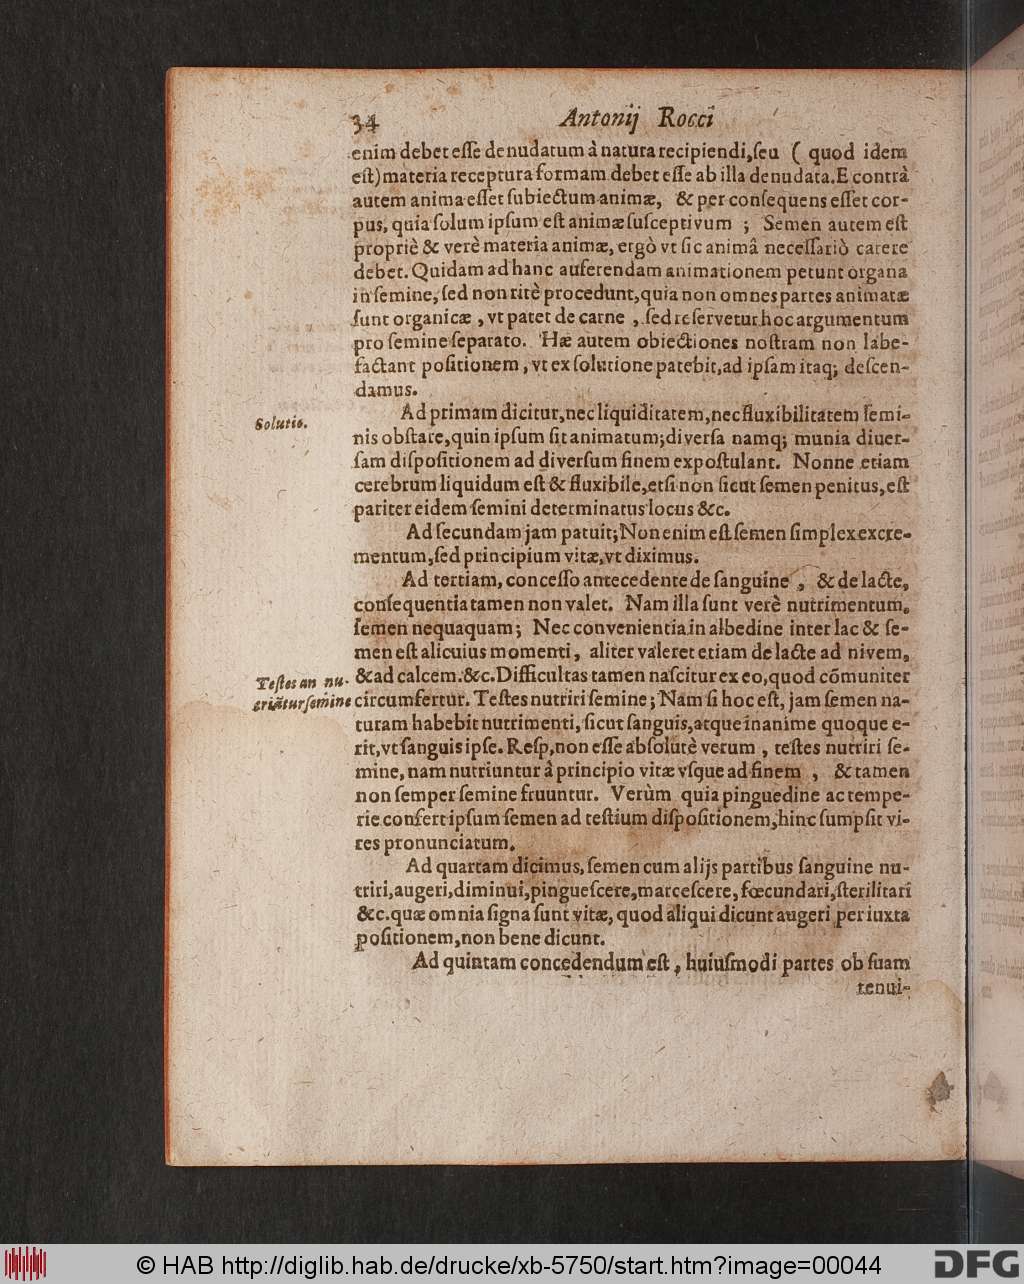 34 Antonij Rocci
enim debet eſſe denudatum à natura recipiendi, ſeu ( quod idem
eſt) materia receptura formam debet eſſe ab illa denudata. E contrà
autem anima eſſet ſubiectum animæ, & per conſequens eſſet cor-
pus, quia ſolum ipſum eſt animæ ſuſceptivum ; Semen autem eſt
propriè & verè materia animæ, ergò vt ſic animâ neceſſariò carere
debet. Quidam ad hanc auferendam animationem petunt organa
in ſemine, ſed non ritè procedunt, quia non omnes partes animatæ
ſunt organicæ , vt patet de carne , ſed reſervetur hoc argumentum
pro ſemine ſeparato. Hæ autem obiectiones noſtram non labe-
factant poſitionem , vt ex ſolutione patebit, ad ipſam itaq; deſcen-
damus.
Solutio.
Ad primam dicitur, nec liquiditatem, nec fluxibilitatem ſemi-
nis obſtare, quin ipſum ſit animatum; diverſa namq; munia diuer-
ſam diſpoſitionem ad diverſum finem expoſtulant. Nonne etiam
cerebrum liquidum eſt & fluxibile, etſi non ſicut ſemen penitus, eſt
pariter eidem ſemini determinatus locus &c.
Ad ſecundam jam patuit; Non enim eſt ſemen ſimplex excre-
mentum, ſed principium vitæ, vt diximus.
Ad tertiam, conceſſo antecedente de ſanguine , & de lacte,
conſequentia tamen non valet. Nam illa ſunt verè nutrimentum,
ſemen nequaquam; Nec convenientia in albedine inter lac & ſe-
men eſt alicuius momenti, aliter valeret etiam de lacte ad nivem,
Teſtes an nu-
triātur ſemine
& ad calcem. &c. Difficultas tamen naſcitur ex eo, quod cōmuniter
circumfertur. Teſtes nutriri ſemine; Nam ſi hoc eſt, jam ſemen na-
turam habebit nutrimenti, ſicut ſanguis, atque inanime quoque e-
rit, vt ſanguis ipſe. Reſp, non eſſe abſolutè verum , teſtes nutriri ſe-
mine, nam nutriuntur à principio vitæ vſque ad finem , & tamen
non ſemper ſemine fruuntur. Verùm quia pinguedine ac tempe-
rie confert ipſum ſemen ad teſtium diſpoſitionem, hinc ſumpſit vi-
res pronunciatum.
Ad quartam dicimus, ſemen cum alijs partibus ſanguine nu-
triri, augeri, diminui, pingueſcere, marceſcere, fœcundari, ſterilitari
&c. quæ omnia ſigna ſunt vitæ, quod aliqui dicunt augeri per iuxta
poſitionem, non bene dicunt.
Ad quintam concedendum eſt , huiuſmodi partes ob ſuam
tenui-
© HAB http://diglib.hab.de/drucke/xb-5750/start.htm?image=00044
DFG